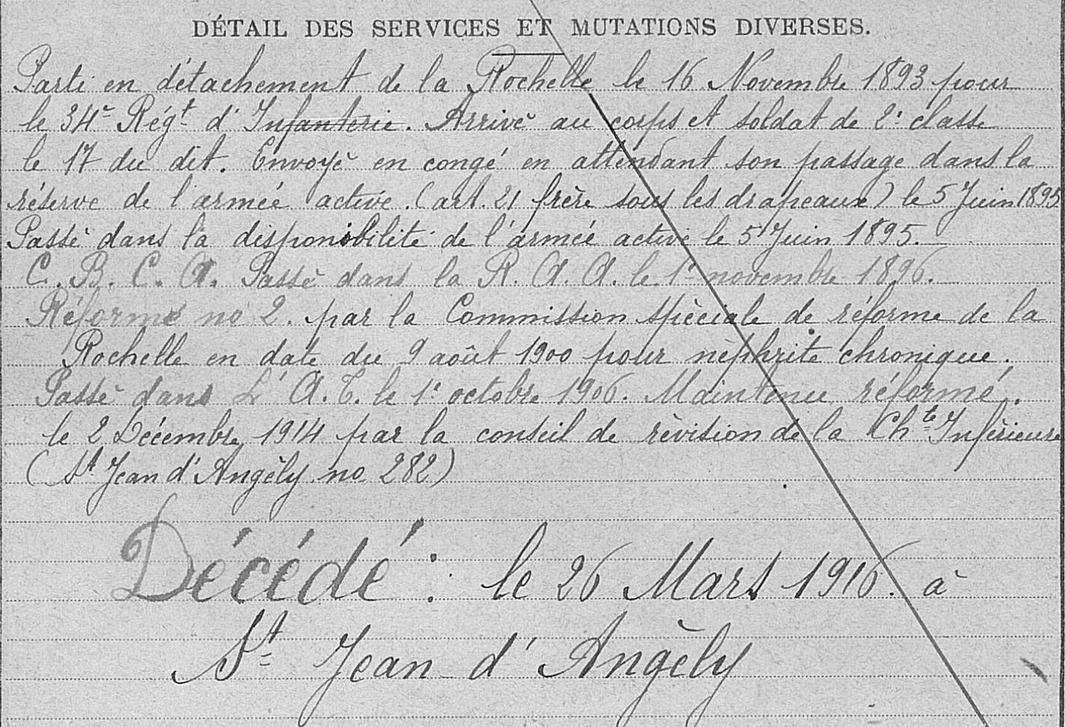 DÉTAIL DES SERVICES ET MUTATIONS DIVERSES.
Parti en détachement de la Rochelle le 16 Novembre 1893 pour
le 34e Régt d'Infanterie. Arrivé au corps et soldat de 2e classe
le 17 du dit. Envoyé en congé en attendant son passage dans la
réserve de l'armée active (art. 21 frère sous les drapeaux) le 5 Juin 1895
Passé dans la disponibilité de l'armée active le 5 Juin 1895.
C. B. C. A. Passé dans la R. A. A. le 1r novembre 1896.
Réformé no 2. par la Commission spéciale de réforme de la
Rochelle en date du 9 août 1900 pour néphrite chronique.
Passé dans L'A.T. le 1r octobre 1906. Maintenu réformé,
le 2 Décembre 1914 par la conseil de révision de la Chte Inférieure
(St Jean d'Angély no 282)
Décédé : le 26 Mars 1916. à
St Jean d'Angély